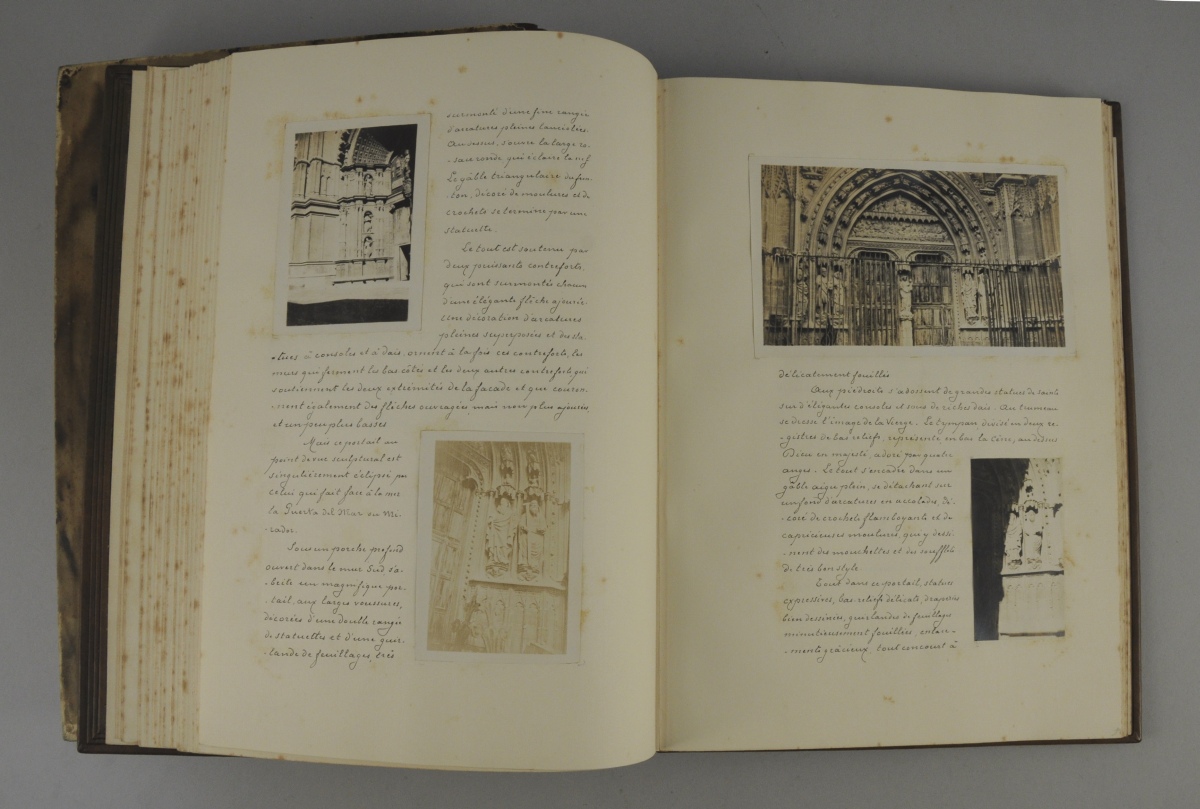 surmonté d'une fine rangée
d'arcatures pleines lancéolées.
Au dessus, s'ouvre la large ro-
-sace ronde, qui éclaire la nef
Le gâble triangulaire du fron-
-ton, décoré de moulures et de
crochets se termine par une
statuette.
Le tout est soutenu par
deux puissants contreforts,
qui sont surmontés chacun
d'une élégante flèche ajourée
Une décoration d'arcatures
pleines superposées et des sta-
-tues à consoles et à dais, ornent à la fois ces contreforts, les
murs qui ferment les bas côtés et les deux autres contreforts qui
soutiennent les deux extrémités de la façade et que couron-
-nent également des flèches ouvragées mais non plus ajourées
et un peu plus basses
Mais ce portail au
point de vue sculptural est
singulièrement éclipsé par
celui qui fait face à la mer
la Puerta del Mar ou Mi-
-rador.
Sous un porche profond
ouvert dans le mur Sud s'a-
-brite un magnifique por-
-tail, aux larges voussures,
décorées d'une double rangée
de statuettes et d'une guir-
-lande de feuillages, très
délicatement fouillés
Aux piédroits s'adossent de grandes statues de saints
sur d'élégantes consoles et sous de riches dais. Au trumeau
se dresse l'image de la Vierge. Le tympan divisé en deux re-
-gistres de bas reliefs, représente en bas la Cène, au dessus
Dieu en majesté, adoré par quatre
anges. Le tout s'encadre dans un
gâble aigu plein, se détachant sur
un fond d'arcatures en accolades, dé-
-coré de crochets flamboyants et de
capricieuses moulures, qui y dessi-
-nent des mouchettes et des soufflets
de très bon style
Tout dans ce portail, statues
expressives, bas-reliefs délicats, draperies
bien dessinées, guirlandes de feuillages
minutieusement fouillées, enlace-
-ments gracieux, tout concourt à